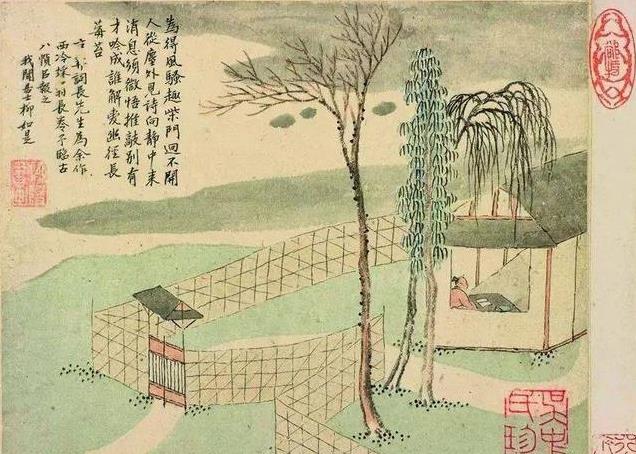 為得風騷趣柴門迥不開
人從塵外見詩向靜中來
消息須微悟推敲別有
才吟成誰解愛幽徑長
莓苔
詞長先生為余作
西泠採菊長卷予臨古
八幀以報之
我聞居士柳如是